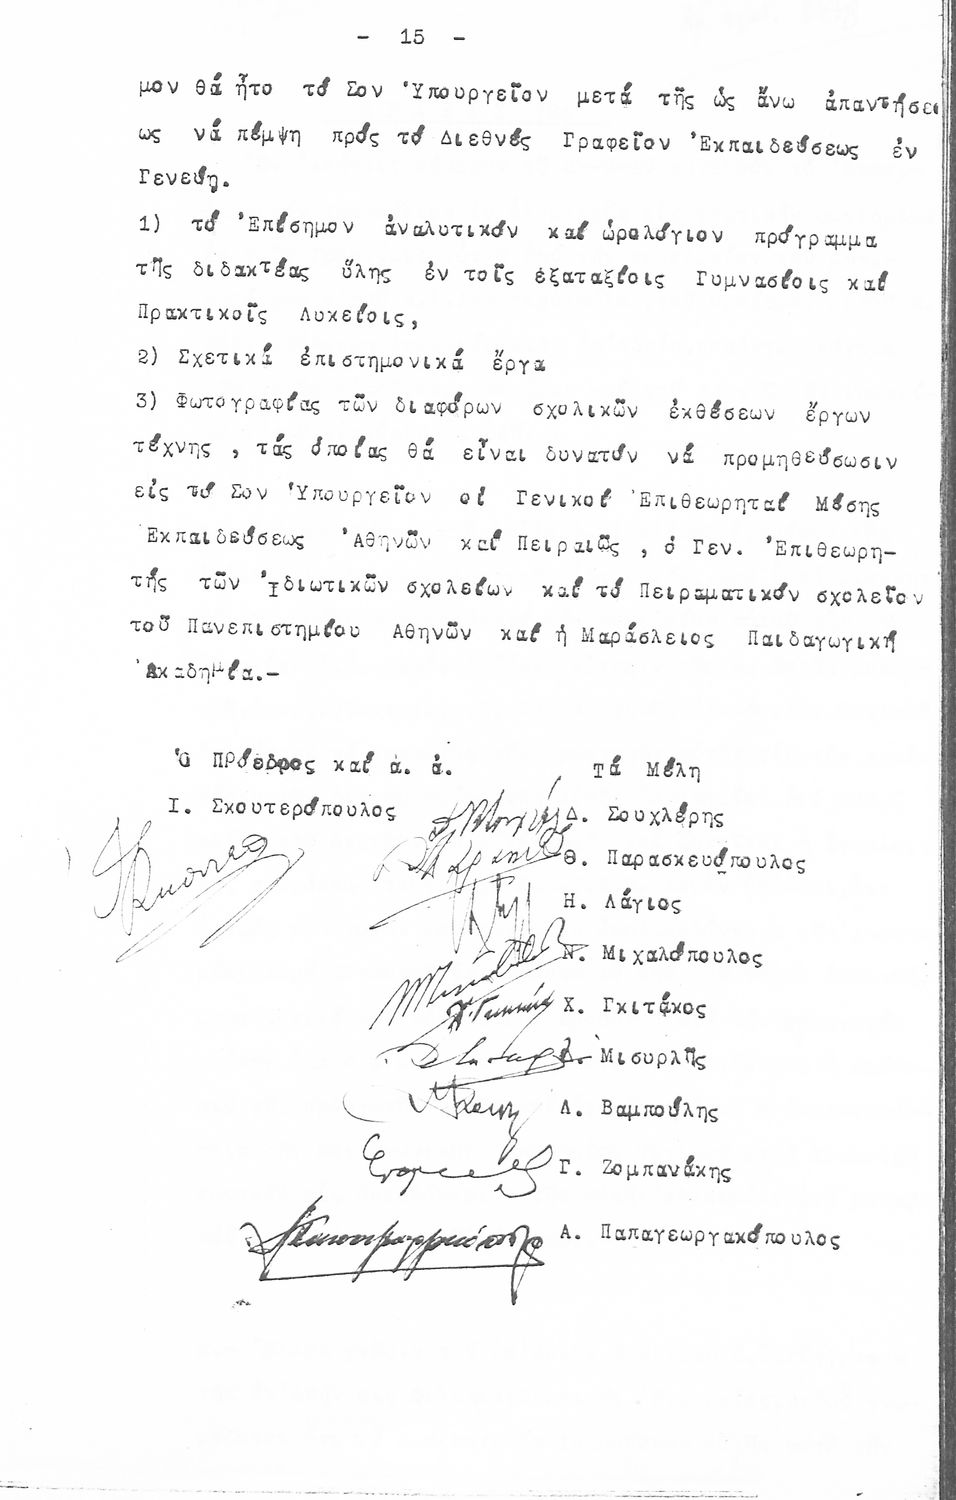 - 15 -
μον θά ἦτο τό Σον Ὑπουργεῖον μετά τῆς ὡς ἄνω ἀπαντήσε
ως νά πέμψη πρός τό Διεθνές Γραφεῖον Ἐκπαιδεύσεως ἐν
Γενεύῃ.
1) τό Ἐπίσημον ἀναλυτικόν καί ὡρολόγιον πρόγραμμα
τῆς διδακτέας ὕλης ἐν τοῖς ἑξαταξίοις Γυμνασίοις καί
Πρακτικοῖς Λυκείοις,
2) Σχετικά ἐπιστημονικά ἔργα
3) Φωτογραφίας τῶν διαφόρων σχολικῶν ἐκθέσεων ἔργων
τέχνης , τάς ὁποίας θά εἶναι δυνατόν νά προμηθεύσωσιν
εἰς τό Σον Ὑπουργεῖον οἱ Γενικοί Ἐπιθεωρηταί Μέσης
Ἐκπαιδεύσεως Ἀθηνῶν καί Πειραιῶς , ὁ Γεν. Ἐπιθεωρη-
τής τῶν Ἰδιωτικῶν σχολείων καί τό Πειραματικόν σχολεῖον
τοῦ Πανεπιστημίου Ἀθηνῶν καί ἡ Μαράσλειος Παιδαγωγική
Ἀκαδημία.-
Ὁ Πρόεδρος καί ἀ. ἀ.
Ι. Σκουτερόπουλος
Τά Μέλη
Δ. Σουχλέρης
Θ. Παρασκευόπουλος
Η. Λάγιος
Ν. Μιχαλόπουλος
Χ. Γκιτάκος
Δ. Μισυρλῆς
Λ. Βαμπούλης
Γ. Ζομπανάκης
Α. Παπαγεωργακόπουλος